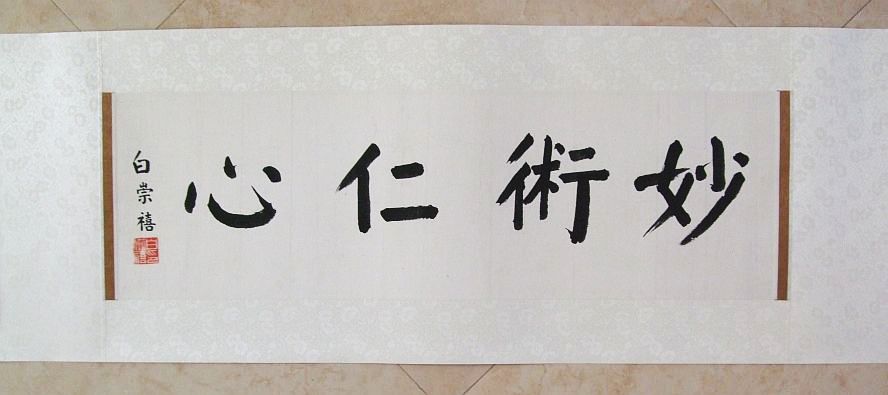 妙術仁心
白崇禧